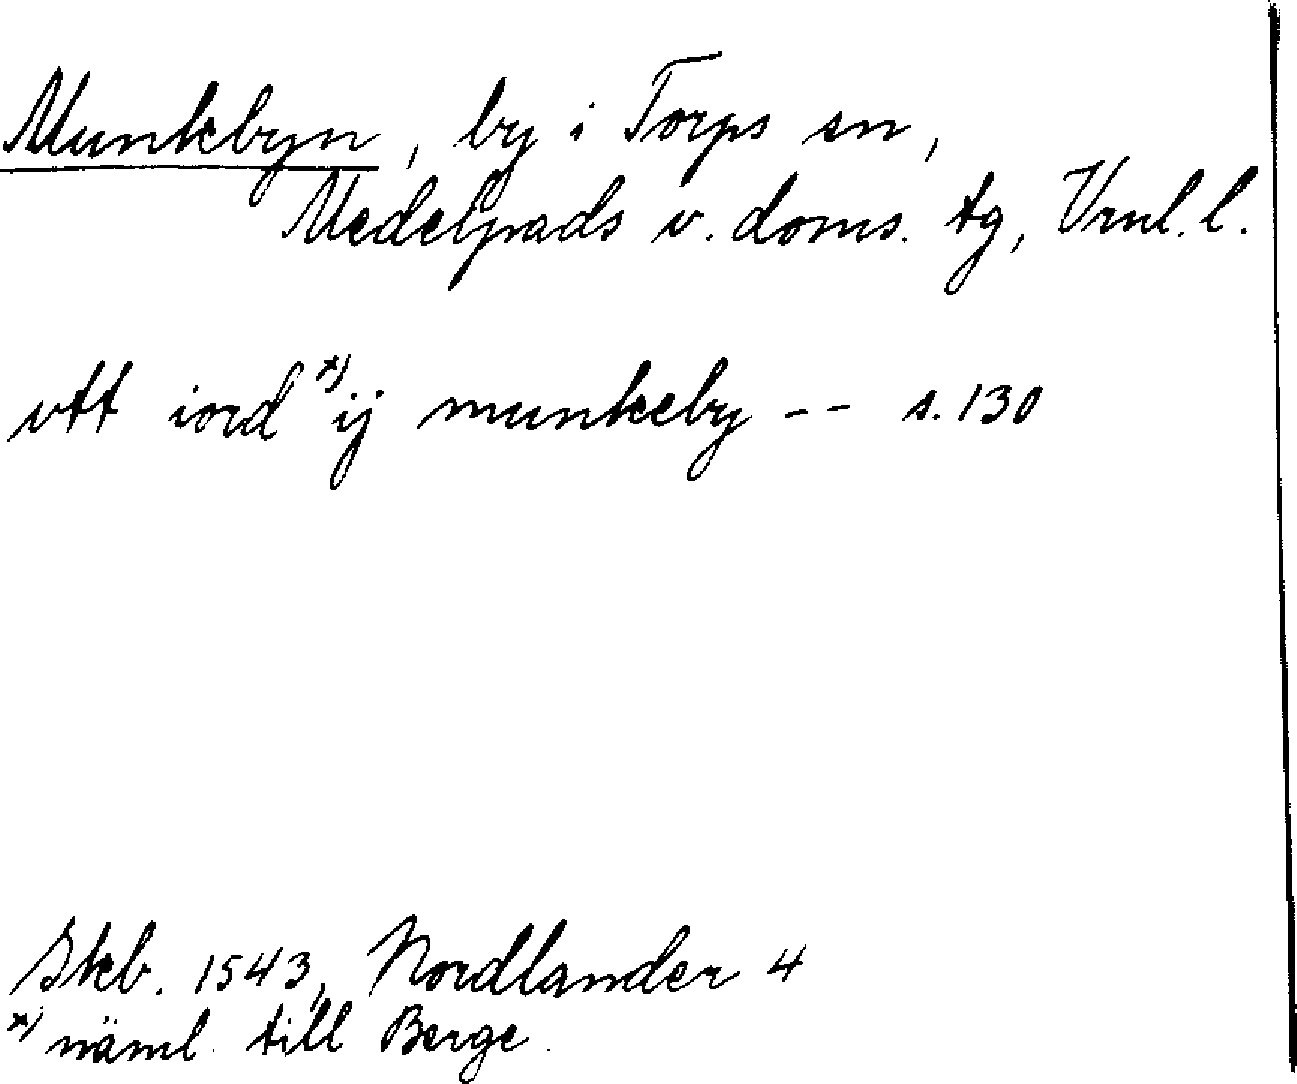 Munkebyn, by i Torps sn,
Medelpads v. doms. tg, Vrnl. l.
vtt iord x) ij munkeby -- s. 130
Skb. 1543, Nordlander 4
x) näml. till Berge.